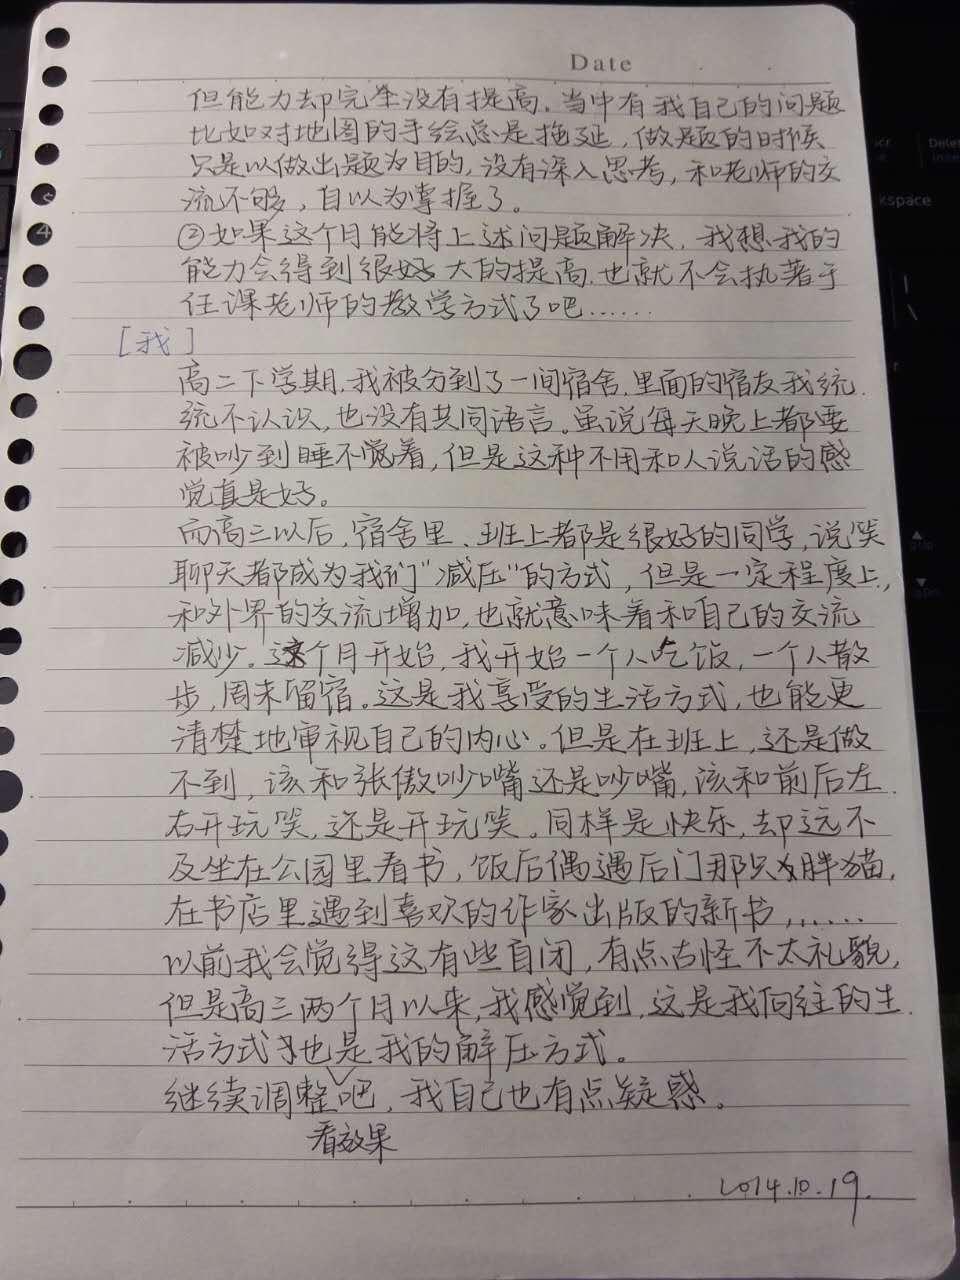 Date
但能力却完全没有提高。当中有我自己的问题
比如对地图的手绘总是拖延，做题的时候
只是以做出题为目的，没有深入思考，和老师的交
流不够，自以为掌握了。
②如果这个月能将上述问题解决，我想我的
能力会得到很好大的提高，也就不会执著于
任课老师的教学方式了吧……
[我]
高二下学期，我被分到了一间宿舍，里面的宿友我统
统不认识，也没有共同语言。虽说每天晚上都要
被吵到睡不觉着，但是这种不用和人说话的感
觉真是好。
而高三以后，宿舍里、班上都是很好的同学，说笑
聊天都成为我们"减压"的方式，但是一定程度上，
和外界的交流增加，也就意味着和自己的交流
减少。这个月开始，我开始一个人吃饭，一个人散
步，周末留宿。这是我享受的生活方式，也能更
清楚地审视自己的内心。但是在班上，还是做
不到，该和张傲吵嘴还是吵嘴，该和前后左
右开玩笑，还是开玩笑。同样是快乐，却远不
及坐在公园里看书，饭后偶遇后门那只胖猫，
在书店里遇到喜欢的作家出版的新书，……
以前我会觉得这有些自闭，有点古怪不太礼貌，
但是高三两个月以来，我感觉到，这是我向往的生
活方式，也是我的解压方式。
继续调整吧，我自己也有点疑惑。
看效果
2014.10.19.
Delete
kspace